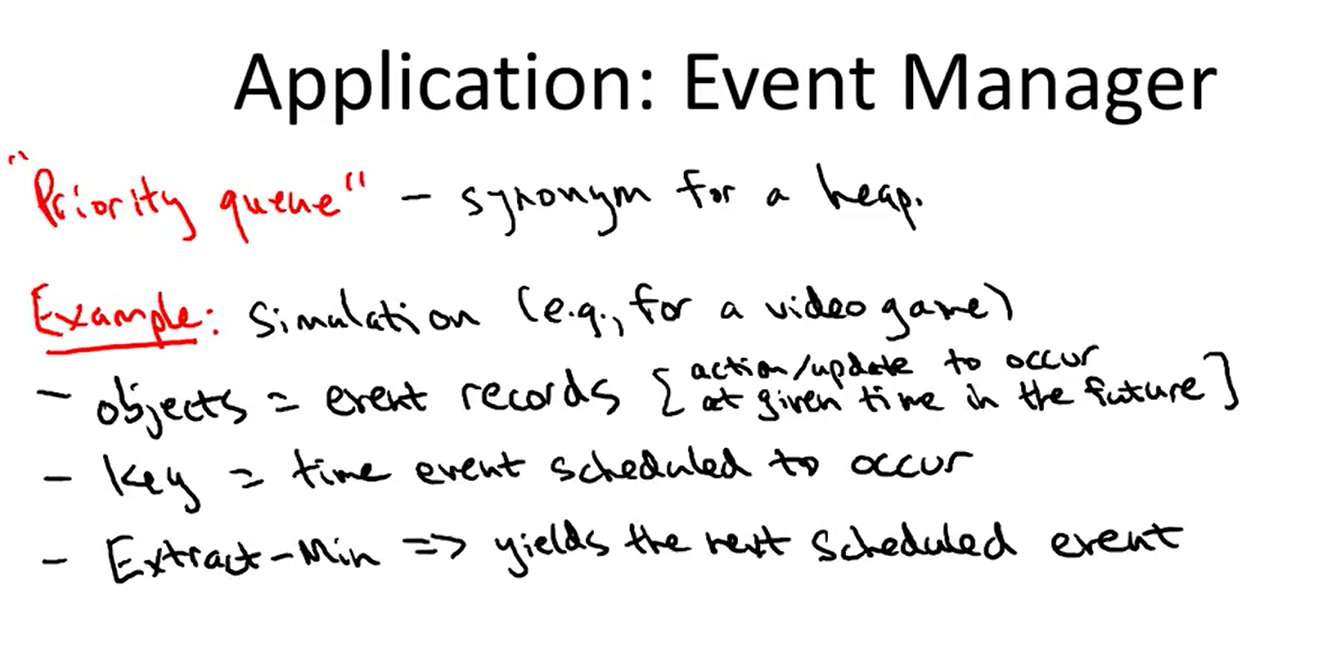 Application: Event Manager
"Priority queue" - synonym for a heap.
Example: simulation (e.g., for a video game)
- objects = event records [action/update to occur
at given time in the future]
- key = time event scheduled to occur
- Extract-Min => yields the next scheduled event